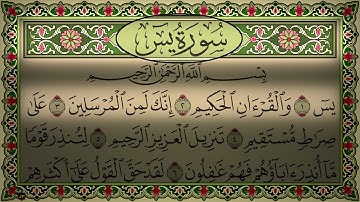 سُورَةُ يسٓ
بِسْمِ ٱللَّهِ ٱلرَّحْمَٰنِ ٱلرَّحِيمِ
يسٓ ١ وَٱلْقُرْءَانِ ٱلْحَكِيمِ ٢ إِنَّكَ لَمِنَ ٱلْمُرْسَلِينَ ٣ عَلَىٰ
صِرَٰطٍ مُّسْتَقِيمٍ ٤ تَنزِيلَ ٱلْعَزِيزِ ٱلرَّحِيمِ ٥ لِتُنذِرَ قَوْمًا
مَّآ أُنذِرَ ءَابَآؤُهُمْ فَهُمْ غَٰفِلُونَ ٦ لَقَدْ حَقَّ ٱلْقَوْلُ عَلَىٰٓ أَكْثَرِهِمْ